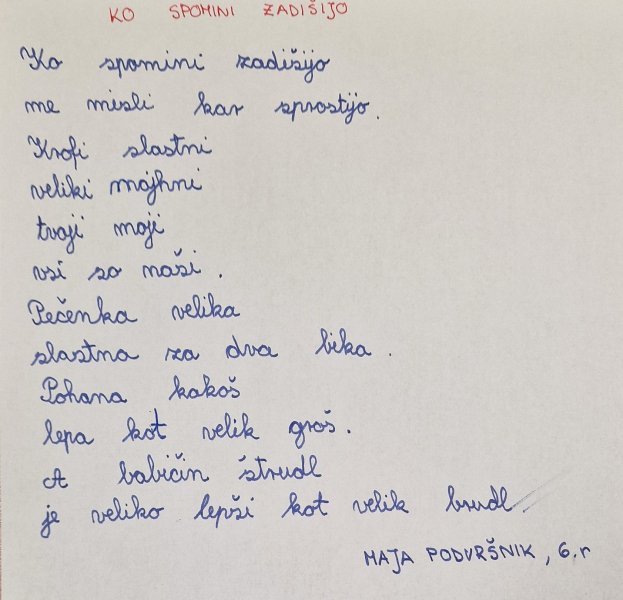 KO SPOMINI ZADIŠIJO
Ko spomini zadišijo
me misli kar sprostijo.
Krofi slastni
veliki majhni
tvoji moji
vsi so naši.
Pečenka velika
slastna za dva bika.
Pohana kokoš
lepa kot velik groš.
A babičin štrudl
je veliko lepši kot velik brudl
MAJA PODVRŠNIK, 6.r